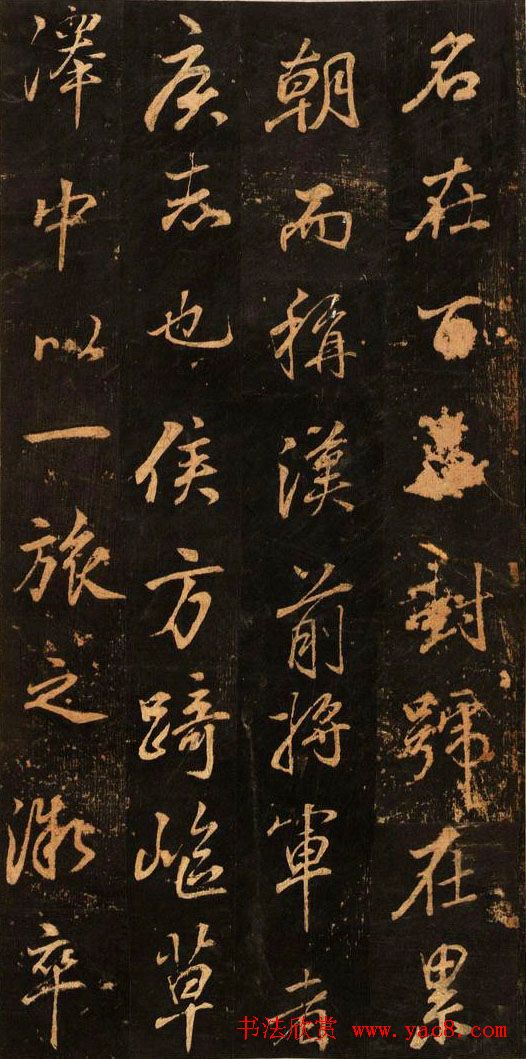 名在百封號在累
朝而稱漢前將軍者
侯志也侯方踦嶇草
澤中以一旅之微卒
书法欣赏 www.yac8.com